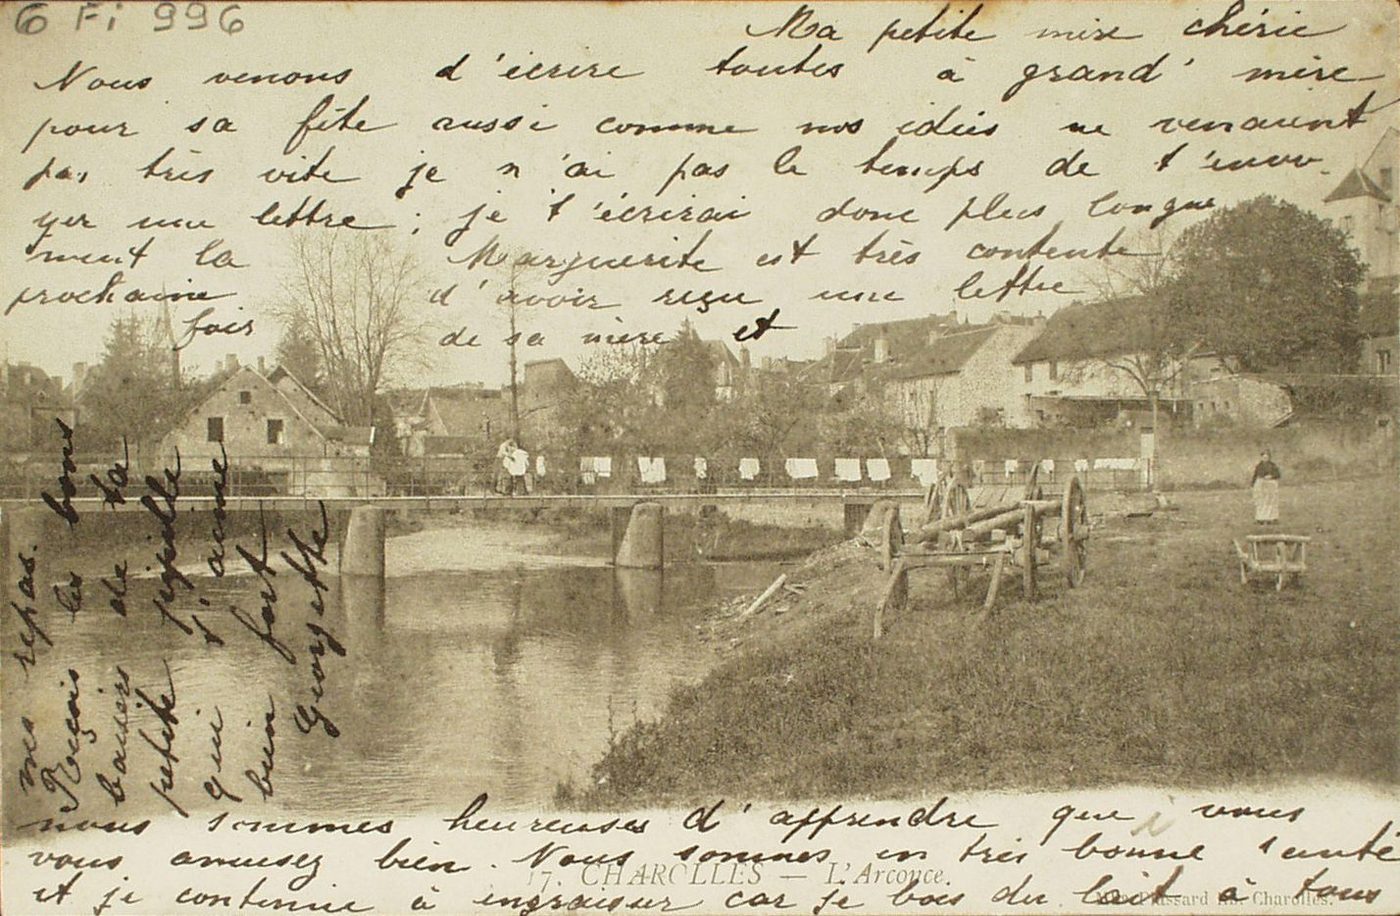 6 Fi 996
Ma petite mère chérie
Nous venons d'écrire toutes à grand' mère
pour sa fête aussi comme nos idées ne venaient
pas très vite je n'ai pas le temps de t'envo-
yer une lettre ; je t'écrirai donc plus longue
ment la
prochaine
fois
Marguerite est très contente
d'avoir reçu une lettre
de sa mère et
nous sommes heureuses d'apprendre que vous
vous amusez bien. Nous sommes en très bonne santé
et je continue à engraisser car je bois du lait à tous
mes repas.
Reçois les bons
baisers de ta
petite fille
qui t'aime
bien fort
Georgette
17. CHAROLLES — L'Arconce.
Charolles.